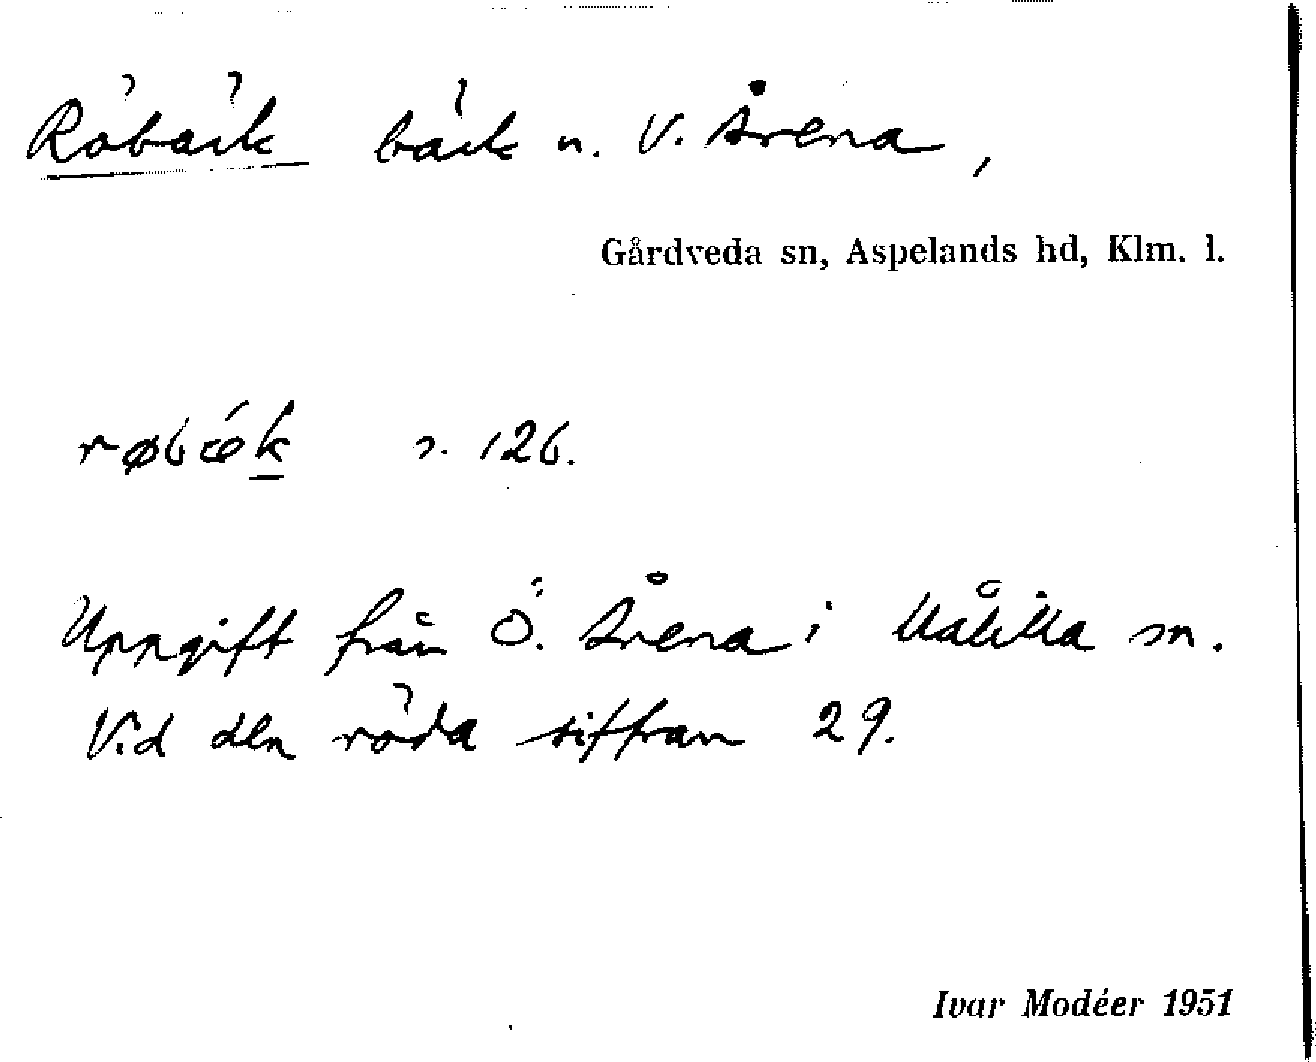 Röbäck bäck n. V. Årena,
Gårdveda sn, Aspelands hd, Klm. l.
røbǽk s. 126.
Uppgift från Ö. Årena i Målilla sn.
Vid den röda siffran 29.
Ivar Modéer 1951